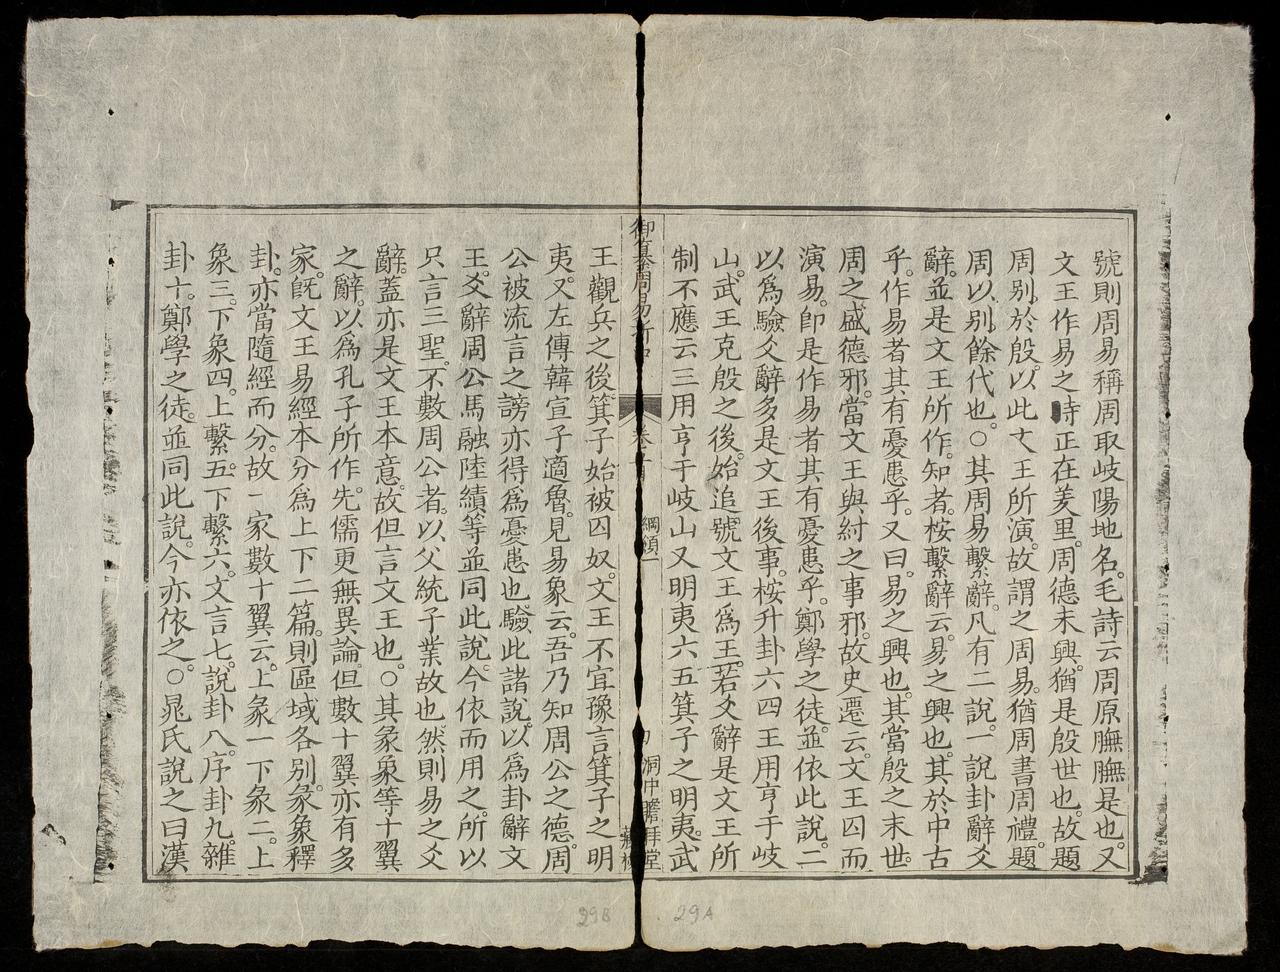 號則周易稱周取岐陽地名。毛詩云周原膴膴是也。又
文王作易之時正在羑里。周德未興。猶是殷世也。故題
周別於殷。以此文王所演。故謂之周易。猶周書周禮。題
周以別餘代也。○其周易繫辭。凡有二說。一說卦辭爻
辭。並是文王所作。知者。桉繫辭云。易之興也。其於中古
乎。作易者其有憂患乎。又曰。易之興也。其當殷之末世。
周之盛德邪。當文王與紂之事邪。故史遷云。文王囚而
演易。卽是作易者其有憂患乎。鄭學之徒。並依此說。二
以爲驗爻辭多是文王後事。桉升卦六四王用亨于岐
山。武王克殷之後。始追號文王爲王。若爻辭是文王所
制不應云王用亨于岐山又明夷六五箕子之明夷。武
御纂周易折中
卷首
綱領一
洞中瞻拜堂
藏板
王觀兵之後。箕子始被囚奴。文王不宜豫言箕子之明
夷。又左傳韓宣子適魯。見易象云。吾乃知周公之德。周
公被流言之謗。亦得爲憂患也。驗此諸說。以爲卦辭文
王。爻辭周公。馬融陸績等並同此說。今依而用之。所以
只言三聖。不數周公者。以父統子業故也。然則易之爻
辭。蓋亦是文王本意。故但言文王也。○其彖象等十翼
之辭。以爲孔子所作。先儒更無異論。但數十翼亦有多
家。旣文王易經本分爲上下二篇。則區域各別。彖象釋
卦。亦當隨經而分。故一家數十翼云。上彖一下彖二。上
象三。下象四。上繫五。下繫六。文言七。說卦八。序卦九。雜
卦十。鄭學之徒。並同此說。今亦依之。○晁氏說之曰漢
29B
29A